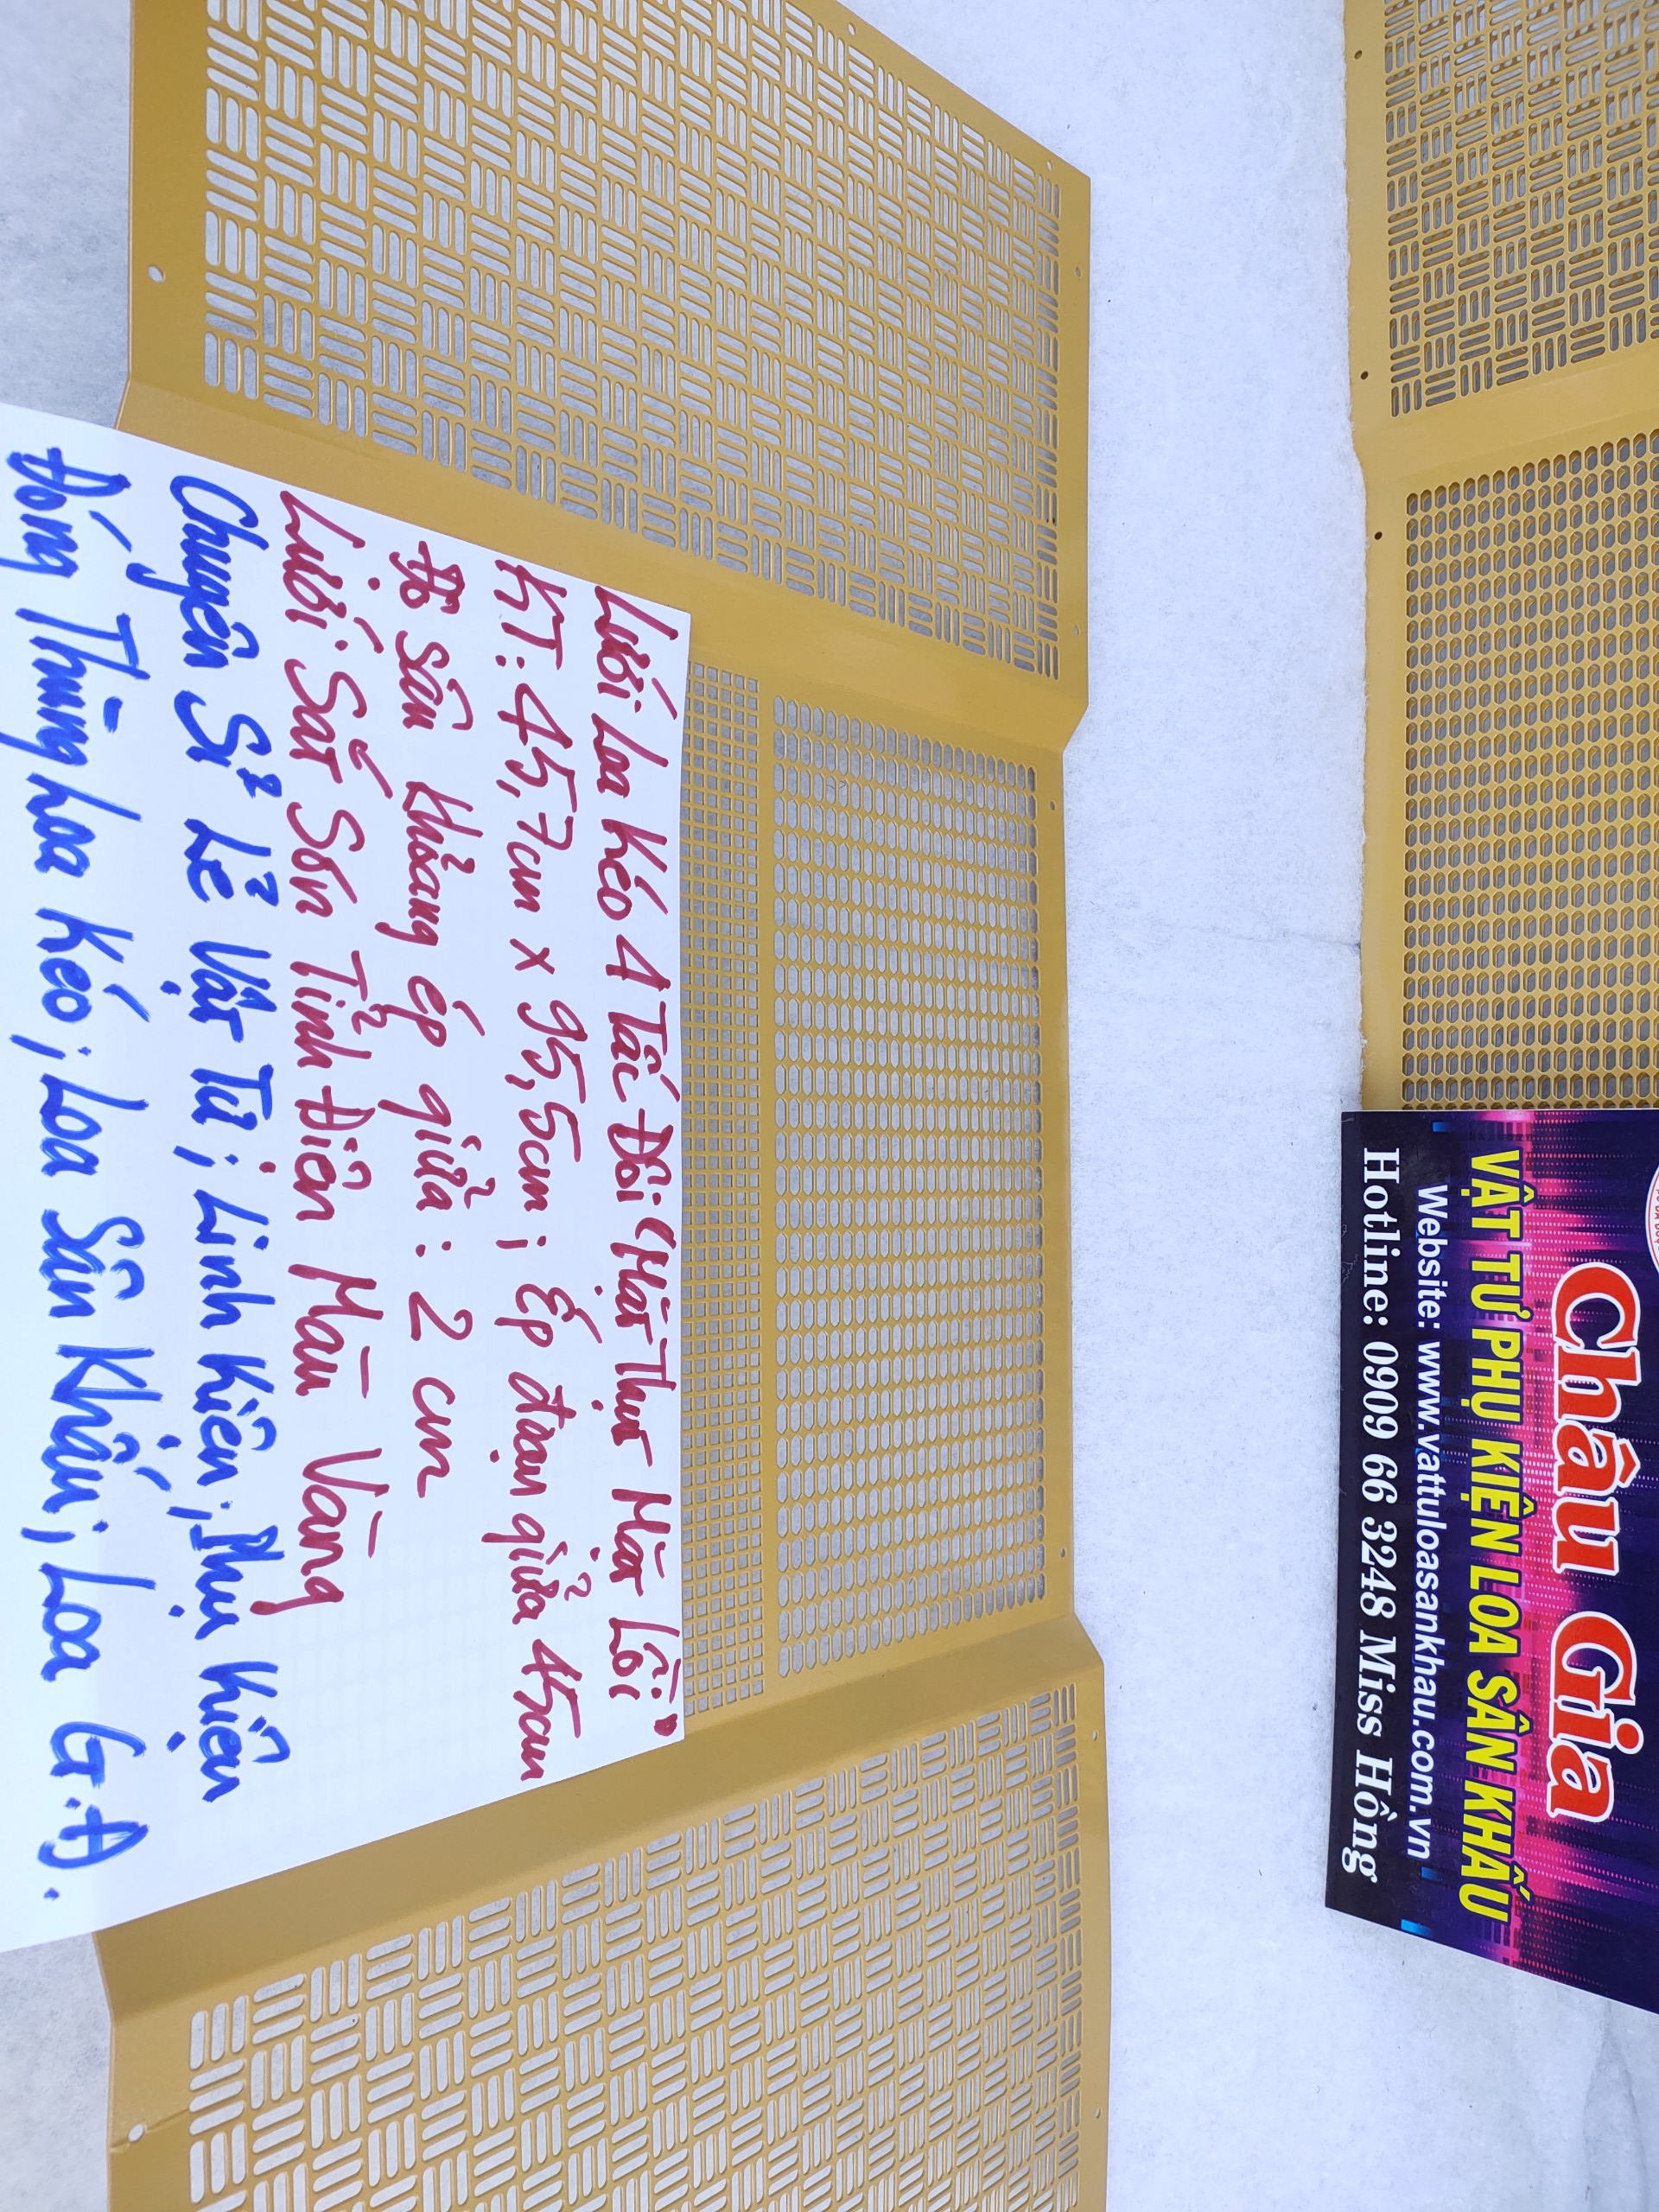 Châu Gia
VẬT TƯ PHỤ KIỆN LOA SÂN KHẤU
Website: www.vattuloasankhau.com.vn
Hotline: 0909 66 3248 Miss Hồng
Lưới Loa Kéo 4 Tấc Đôi (Mặt Thụt Mặt Lồi)
KT: 45,7cm x 95,5cm; Ép đoạn giữa 45cm
Độ sâu khoảng ép giữa: 2 cm
Lưới Sắt Sơn Tỉnh Điện Màu Vàng
Chuyên Sỉ Lẻ Vật Tư; Linh Kiện; Phụ Kiện
Đóng Thùng Loa Kéo; Loa Sân Khấu; Loa G.Đ.